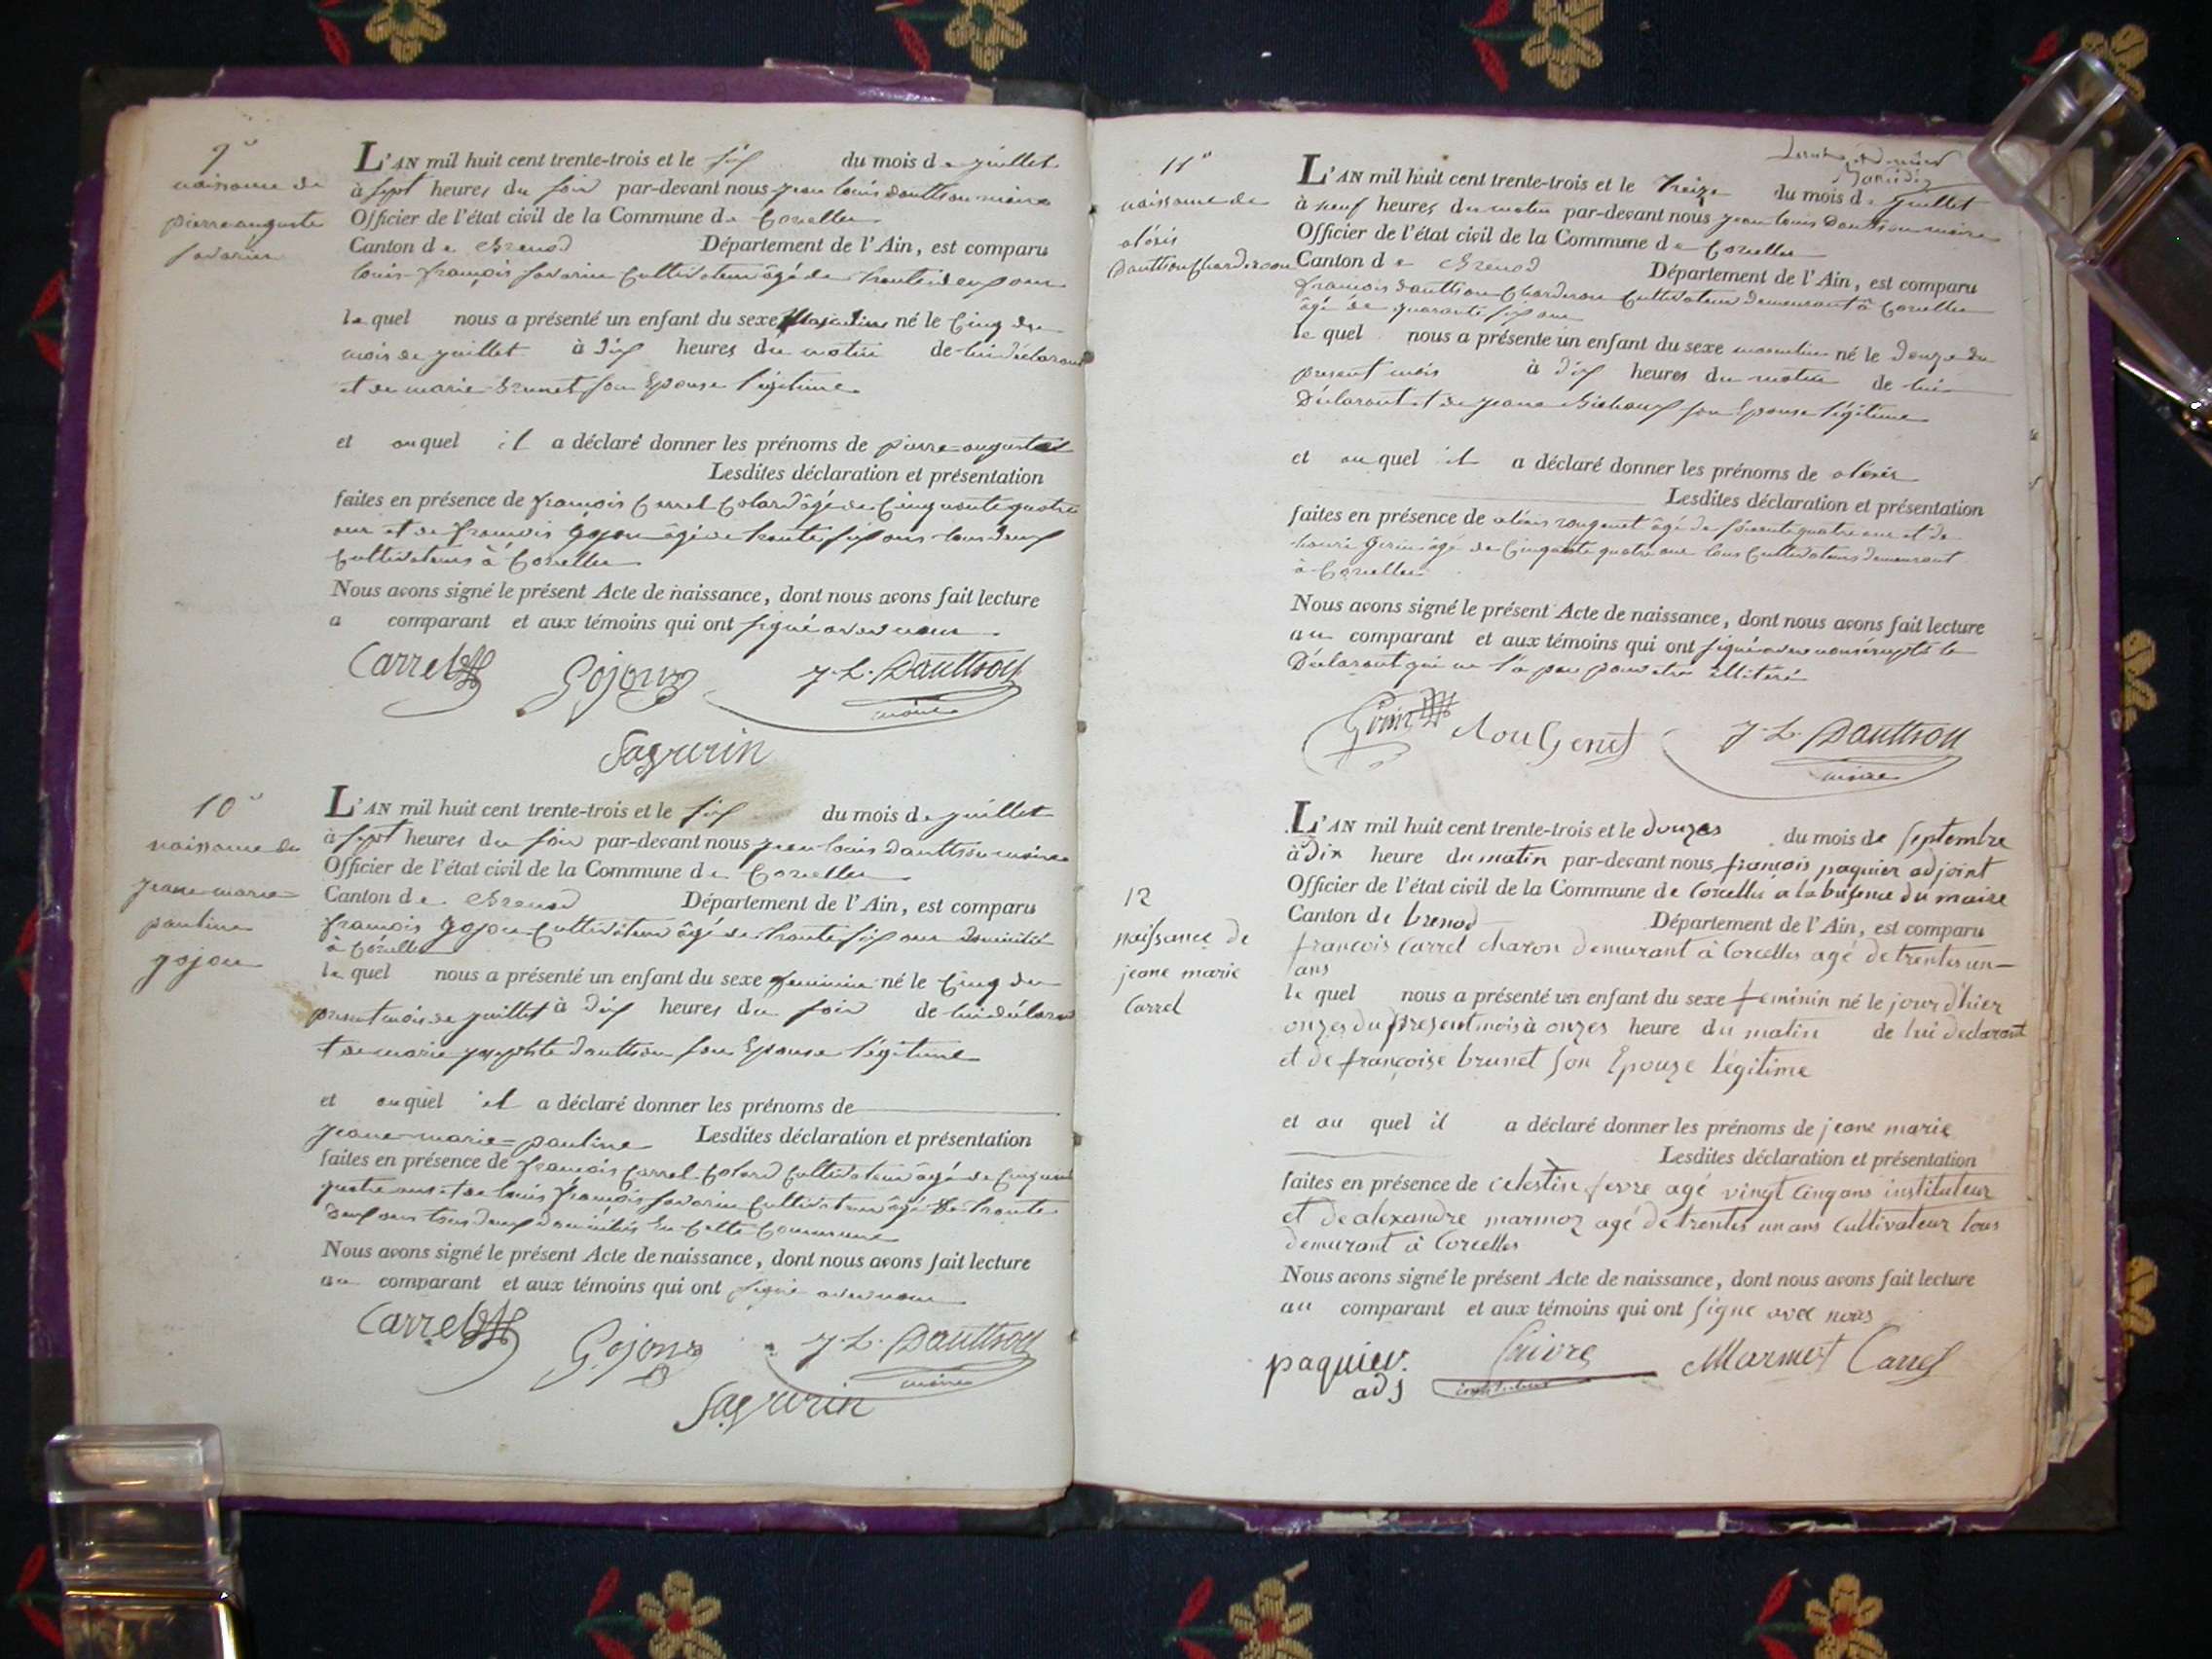 9°
naissance de
pierre auguste
savarin
L'AN mil huit cent trente-trois et le six du mois de juillet
à sept heures du soir par-devant nous jean louis dauttson maire
Officier de l'état civil de la Commune de Corcelles
Canton de Brenod Département de l'Ain, est comparu
louis françois savarin Cultivateur âgé de trente deux ans
le quel nous a présenté un enfant du sexe Masculin né le Cinq du
mois de juillet à dix heures du matin de lui déclarant
et de marie Brunet son Epouse légitime
et auquel il a déclaré donner les prénoms de pierre auguste
Lesdites déclaration et présentation
faites en présence de françois Carrel Colard âgé de Cinquante quatre
ans et de françois gojon âgé de trente six ans tous deux
Cultivateurs à Corcelles
Nous avons signé le présent Acte de naissance, dont nous avons fait lecture
a comparant et aux témoins qui ont signé avec nous
Carrel Gojon J. L. Dauttson
maire
Savurin
10°
naissance de
jeane marie
pauline
gojon
L'AN mil huit cent trente-trois et le six du mois de juillet
à sept heures du soir par-devant nous jean louis dauttson maire
Officier de l'état civil de la Commune de Corcelles
Canton de Brenod Département de l'Ain, est comparu
françois gojon Cultivateur âgé de trente six ans domicilié
à Corcelles
le quel nous a présenté un enfant du sexe feminin né le Cinq du
present mois de juillet à dix heures du soir de lui déclarant
et de marie josephte dauttson son Epouse légitime
et auquel il a déclaré donner les prénoms de
jeane marie = pauline Lesdites déclaration et présentation
faites en présence de françois Carrel Colard Cultivateur âgé de Cinquante
quatre ans et de louis françois savarin Cultivateur âgé de trente
deux ans tous deux domiciliés en Cette Commune
Nous avons signé le présent Acte de naissance, dont nous avons fait lecture
au comparant et aux témoins qui ont signé avec nous
Carrel Gojon J. L. Dauttson
maire
Savurin
11°
naissance de
aléxis
Dauttson Charderon
L'AN mil huit cent trente-trois et le treize du mois de juillet
à neuf heures du matin par-devant nous jean louis Dauttson maire
Officier de l'état civil de la Commune de Corcelles
Canton de Brenod Département de l'Ain, est comparu
françois dauttson Charderon Cultivateur demeurant à Corcelles
âgé de quarante six ans
le quel nous a présenté un enfant du sexe masculin né le douze du
present mois à dix heures du matin de lui
Déclarant et de jeane son Epouse légitime
et au quel il a déclaré donner les prénoms de aléxis
Lesdites déclaration et présentation
faites en présence de aléxis rougenet âgé de soixante quatre ans et de
âgé de Cinquante quatre ans tous Cultivateurs demeurant
à Corcelles
Nous avons signé le présent Acte de naissance, dont nous avons fait lecture
au comparant et aux témoins qui ont signé avec nous excepté le
Déclarant qui ne l'a pas pour etre illitéré
RouGenet J. L. Dauttson
maire
12
naissance de
jeane marie
Carrel
L'AN mil huit cent trente-trois et le douzes du mois de septembre
à dix heure du matin par-devant nous françois paquier adjoint
Officier de l'état civil de la Commune de Corcelles a la bisence du maire
Canton de brenod Département de l'Ain, est comparu
françois Carrel charon demurant à Corcelles agé de trentes un
ans
le quel nous a présenté un enfant du sexe feminin né le jour d'hier
onzes du present mois à onzes heure du matin de lui declarant
et de françoise brunet son Epouze légitime
et au quel il a déclaré donner les prénoms de jeane marie
Lesdites déclaration et présentation
faites en présence de celestin fevre agé vingt cinq ans instituteur
et de aléxandre marmoz agé de trentes un ans Cultivateur tous
demurant à Corcelles
Nous avons signé le présent Acte de naissance, dont nous avons fait lecture
au comparant et aux témoins qui ont signe avec nous
paquier. Faivre Marmet Carrel
adj instituteur